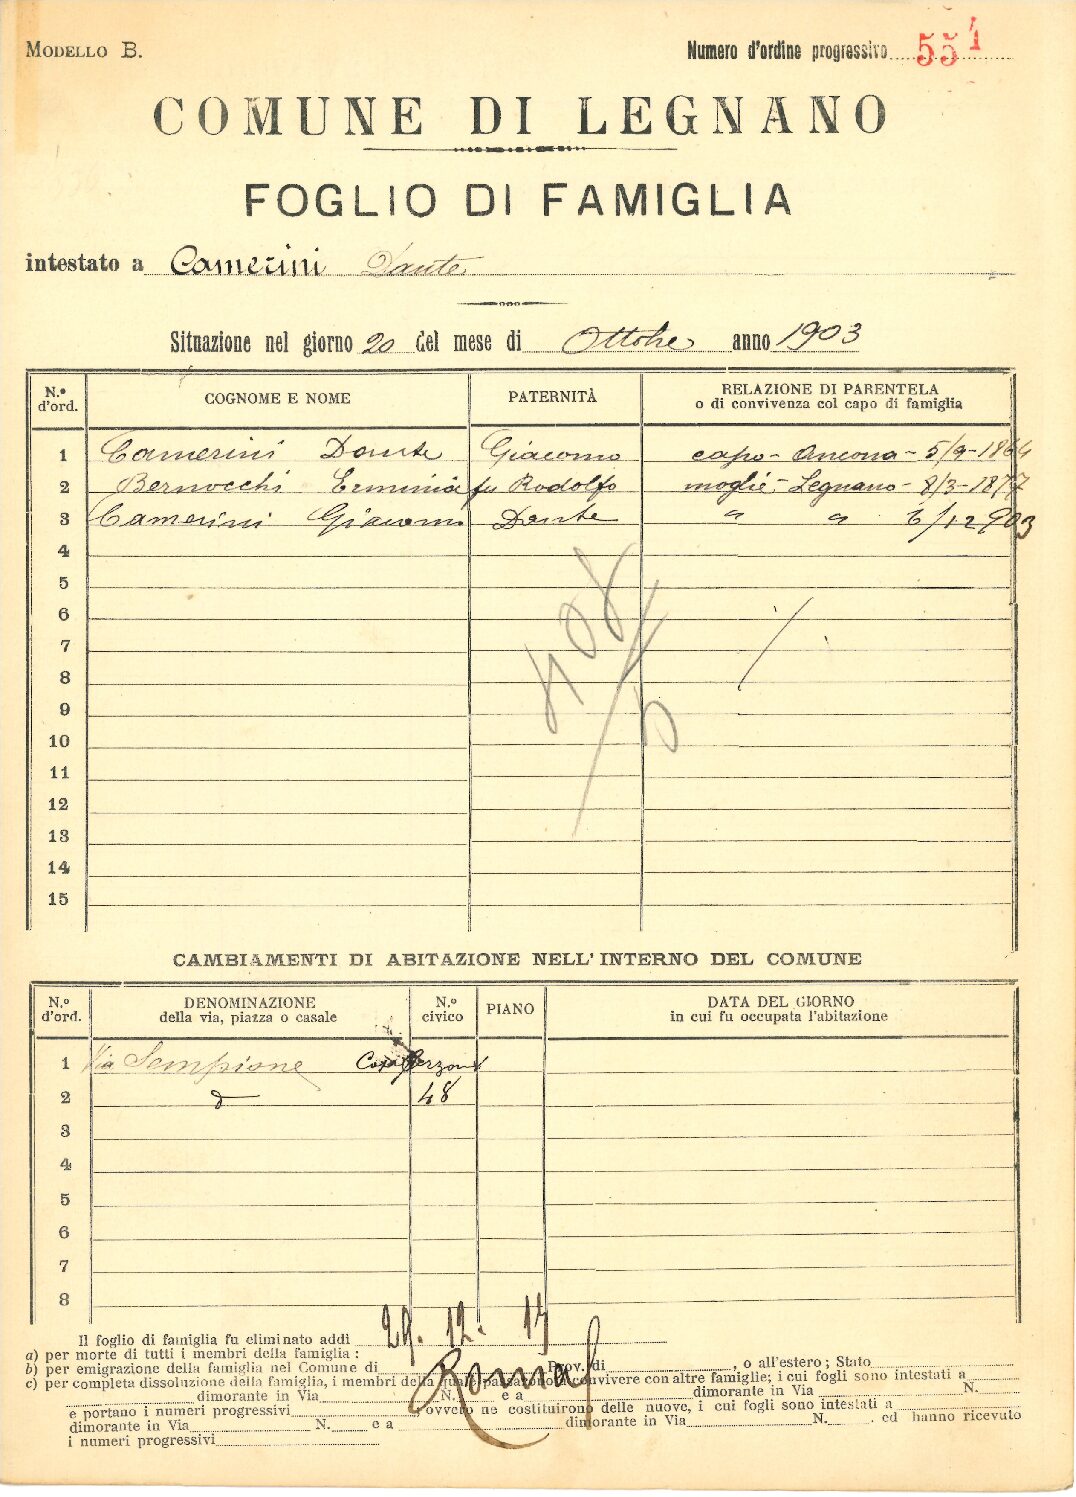 MODELLO B.
Numero d'ordine progressivo 551
COMUNE DI LEGNANO
FOGLIO DI FAMIGLIA
intestato a Camerini Dante
Situazione nel giorno 20 del mese di Ottobre anno 1903
N.º d'ord. COGNOME E NOME PATERNITÀ RELAZIONE DI PARENTELA o di convivenza col capo di famiglia
1 Camerini Dante Giacomo capo - Ancona - 5/9-1864
2 Bernocchi Erminia fu Rodolfo moglie - Legnano - 8/3-1877
3 Camerini Giacomo Dante " " 6/12 903
4
5
6
7
8
9
10
11
12
13
14
15
408/5
CAMBIAMENTI DI ABITAZIONE NELL'INTERNO DEL COMUNE
N.º d'ord. DENOMINAZIONE della via, piazza o casale N.º civico PIANO DATA DEL GIORNO in cui fu occupata l'abitazione
1 Via Sempione Casa
2 48
3
4
5
6
7
8
Il foglio di famiglia fu eliminato addì 29. 12. 14
a) per morte di tutti i membri della famiglia :
b) per emigrazione della famiglia nel Comune di Roma Prov. di , o all'estero ; Stato
c) per completa dissoluzione della famiglia, i membri della quale passarono a convivere con altre famiglie; i cui fogli sono intestati a
dimorante in Via N. e a dimorante in Via N.
e portano i numeri progressivi ovvero ne costituirono delle nuove, i cui fogli sono intestati a
dimorante in Via N. e a dimorante in Via N. ed hanno ricevuto
i numeri progressivi